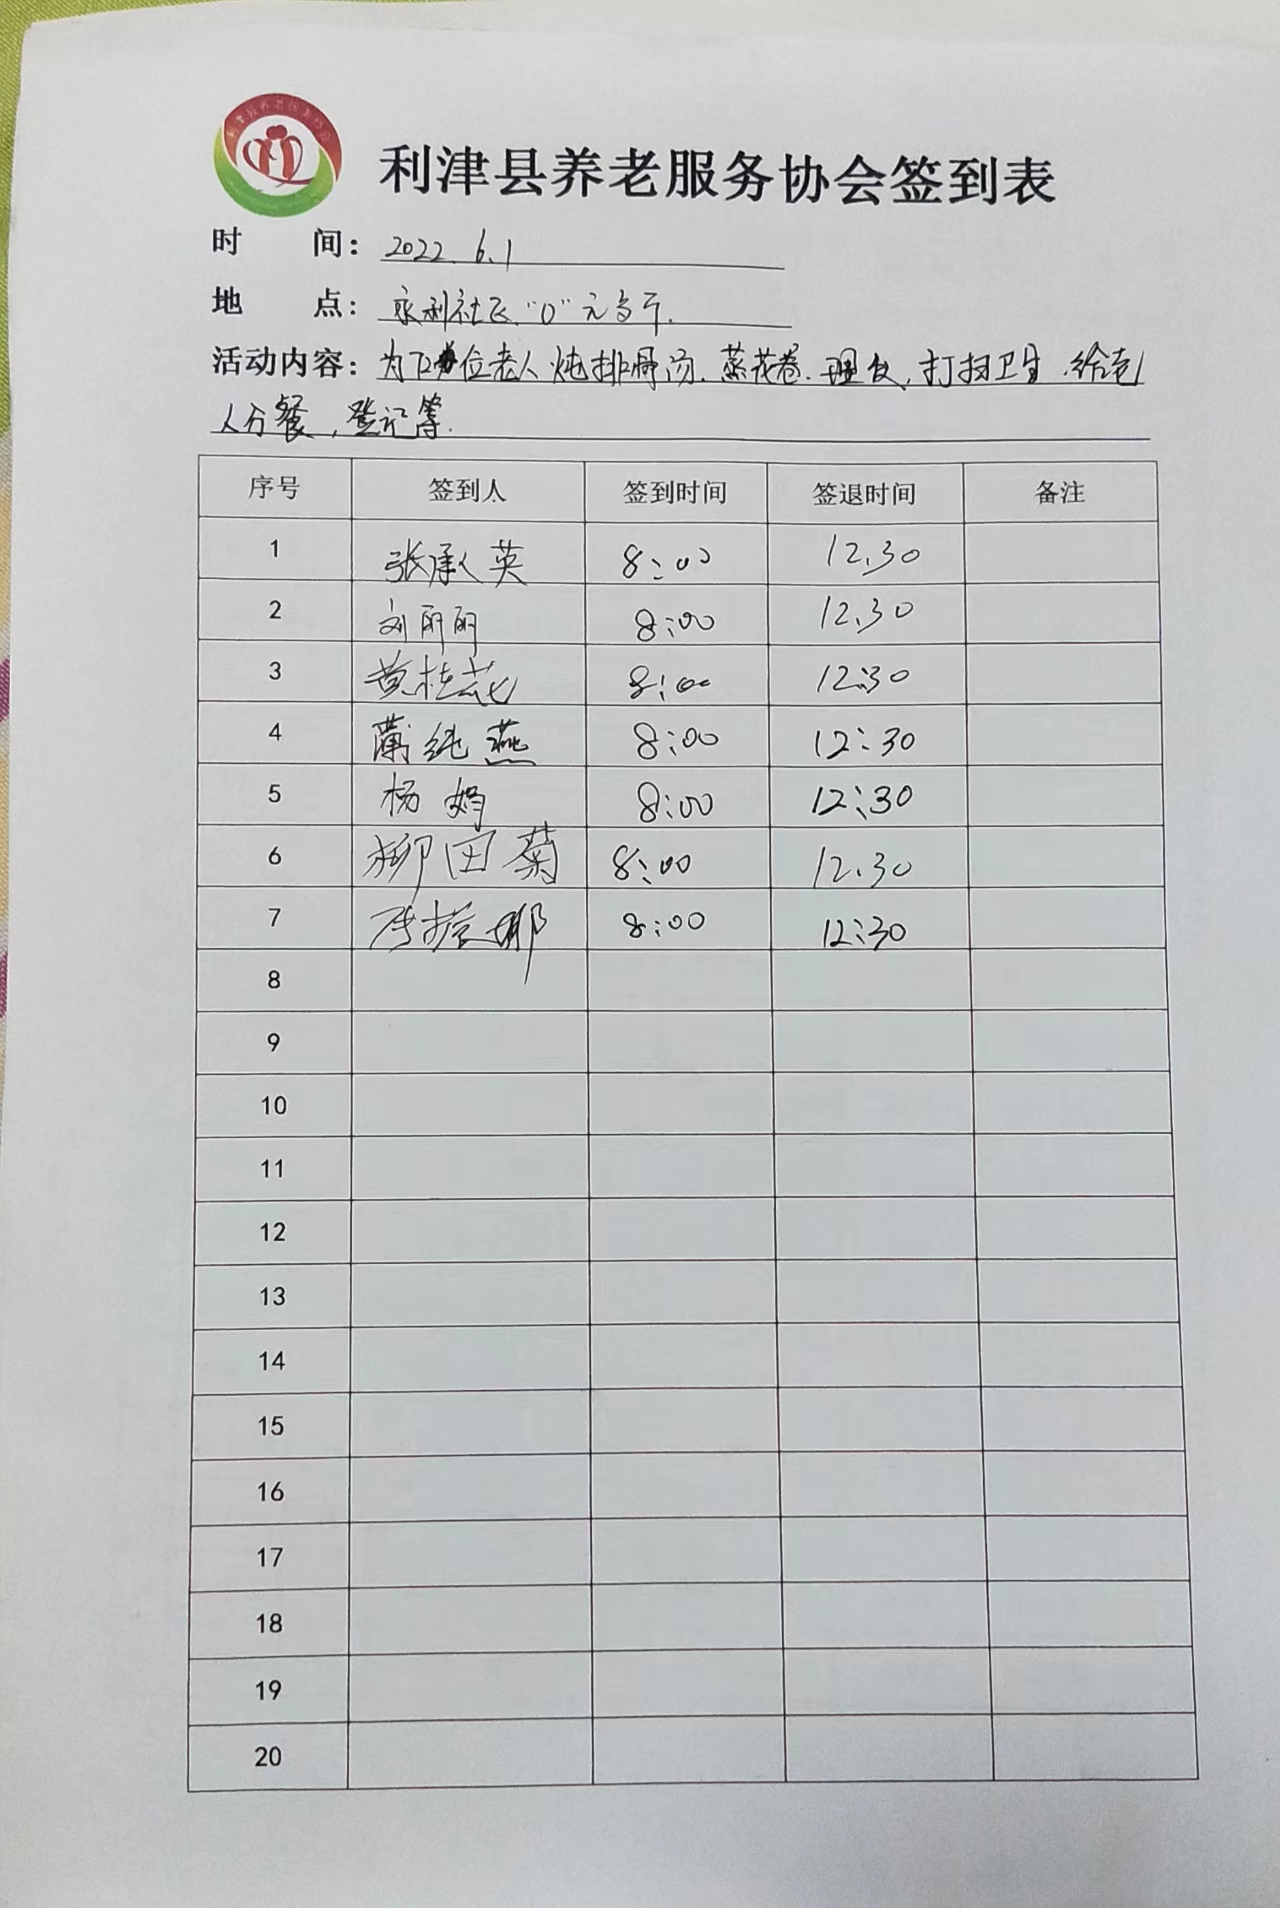 利津县养老服务协会签到表
时 间: 2022.6.1
地 点: 永利社区"0"元
活动内容: 为 位老人炖排骨汤.蒸花卷.理发.打扫卫生.给老
人分餐,登记等.
序号 签到人 签到时间 签退时间 备注
1 张承英 8:00 12.30
2 刘丽丽 8:00 12.30
3 黄桂花 8:00 12:30
4 纯燕 8:00 12:30
5 杨娟 8:00 12:30
6 柳田菊 8:00 12.30
7 娜 8:00 12:30
8
9
10
11
12
13
14
15
16
17
18
19
20